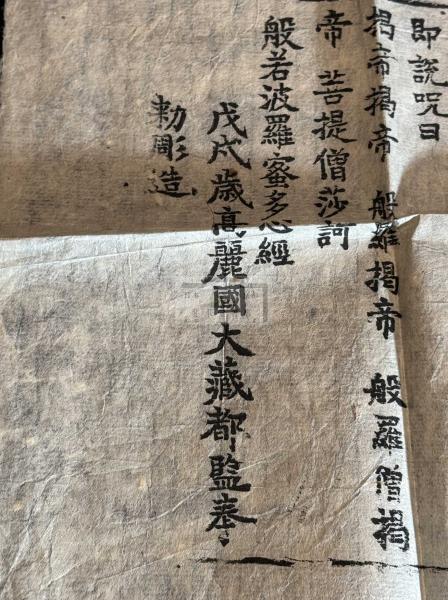 即說呪曰
揭帝揭帝 般羅揭帝 般羅僧揭
帝 菩提僧莎訶
般若波羅蜜多心經
戊戌歲高麗國大藏都監奉
勅彫造